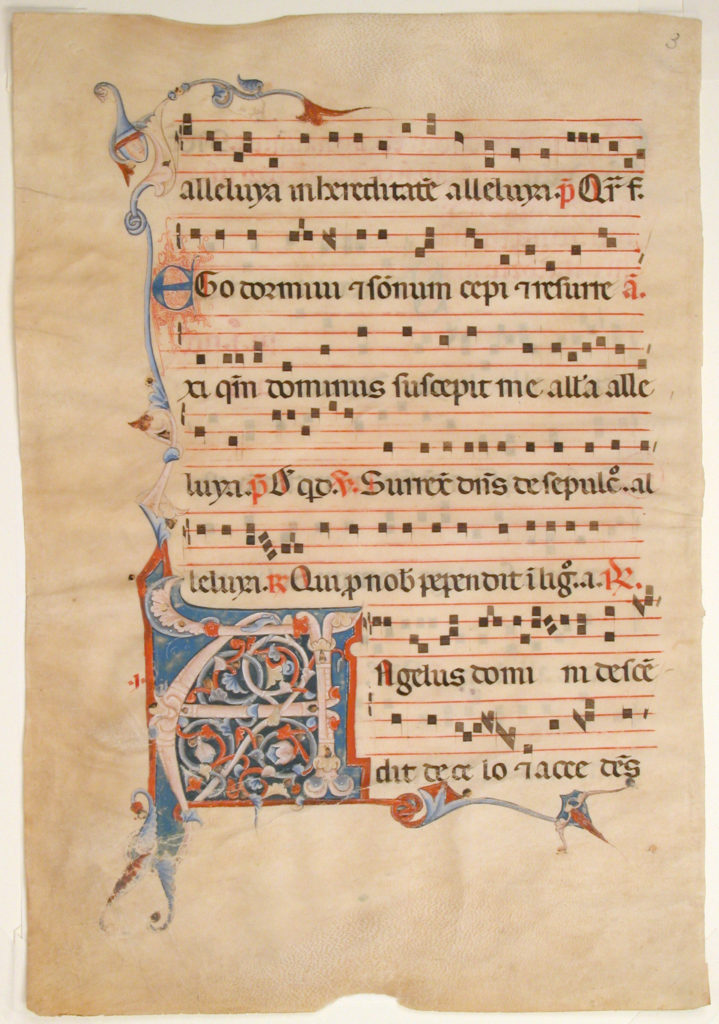 3
alleluya in hereditatē alleluya. p̄ Qr̄ f.
EGo dormiui ⁊ sōnum cepi ⁊ resurre ā.
xi qm̄ dominus suscepit me all'a alle
luya. p̄ qd. v̄. Surrex̄ dn̄s de sepulc̄o. al
leluya. R Qui p nob̄ pependit ī lig̊. a. R.
Angelus domi ni descē
·1·
dit de ce lo ⁊ acce dēs